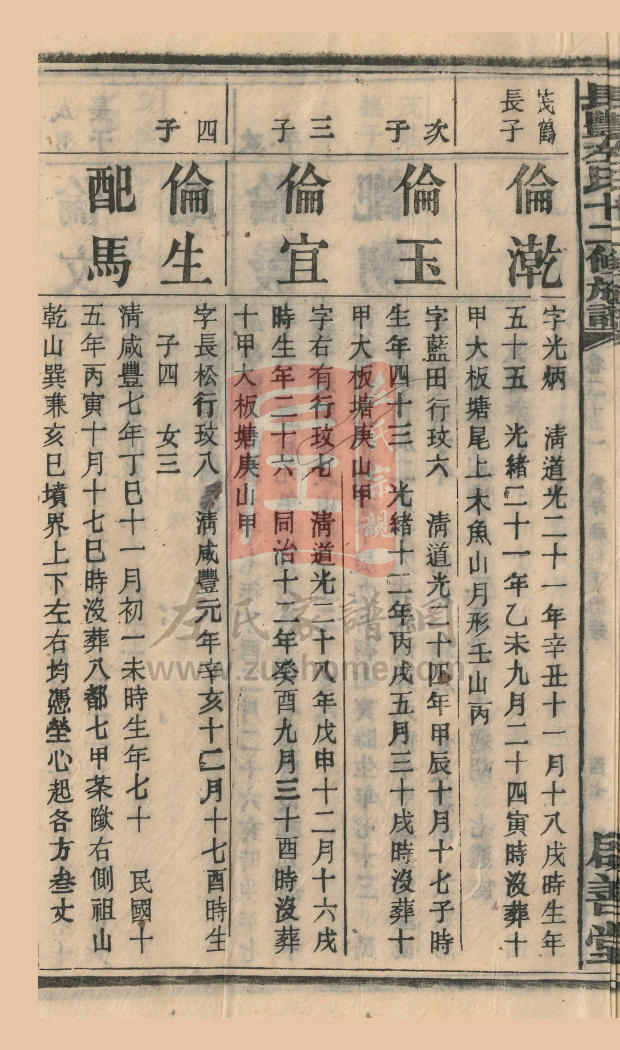 左氏十二修族譜
啟善堂
茂鶴
長子
倫漧
字光炳 淸道光二十一年辛丑十一月十八戌時生年
五十五 光緒二十一年乙未九月二十四寅時沒葬十
甲大板塘尾上木魚山月形壬山丙
次子
倫玉
字藍田行玟六 淸道光二十四年甲辰十月十七子時
生年四十三 光緒十二年丙戌五月三十戌時沒葬十
甲大板塘庚山甲
三子
倫宜
字右有行玟七 淸道光二十八年戊申十二月十六戌
時生年二十六 同治十二年癸酉九月三十酉時沒葬
十甲大板塘庚山甲
四子
倫生
字長松行玟八 淸咸豐元年辛亥十二月十七酉時生
子四 女三
配馬
淸咸豐七年丁巳十一月初一未時生年七十 民國十
五年丙寅十月十七巳時沒葬八都七甲茶陰右側祖山
乾山巽兼亥巳墳界上下左右均憑塋心起各方叁丈
左氏家譜網
www.zuohome.com